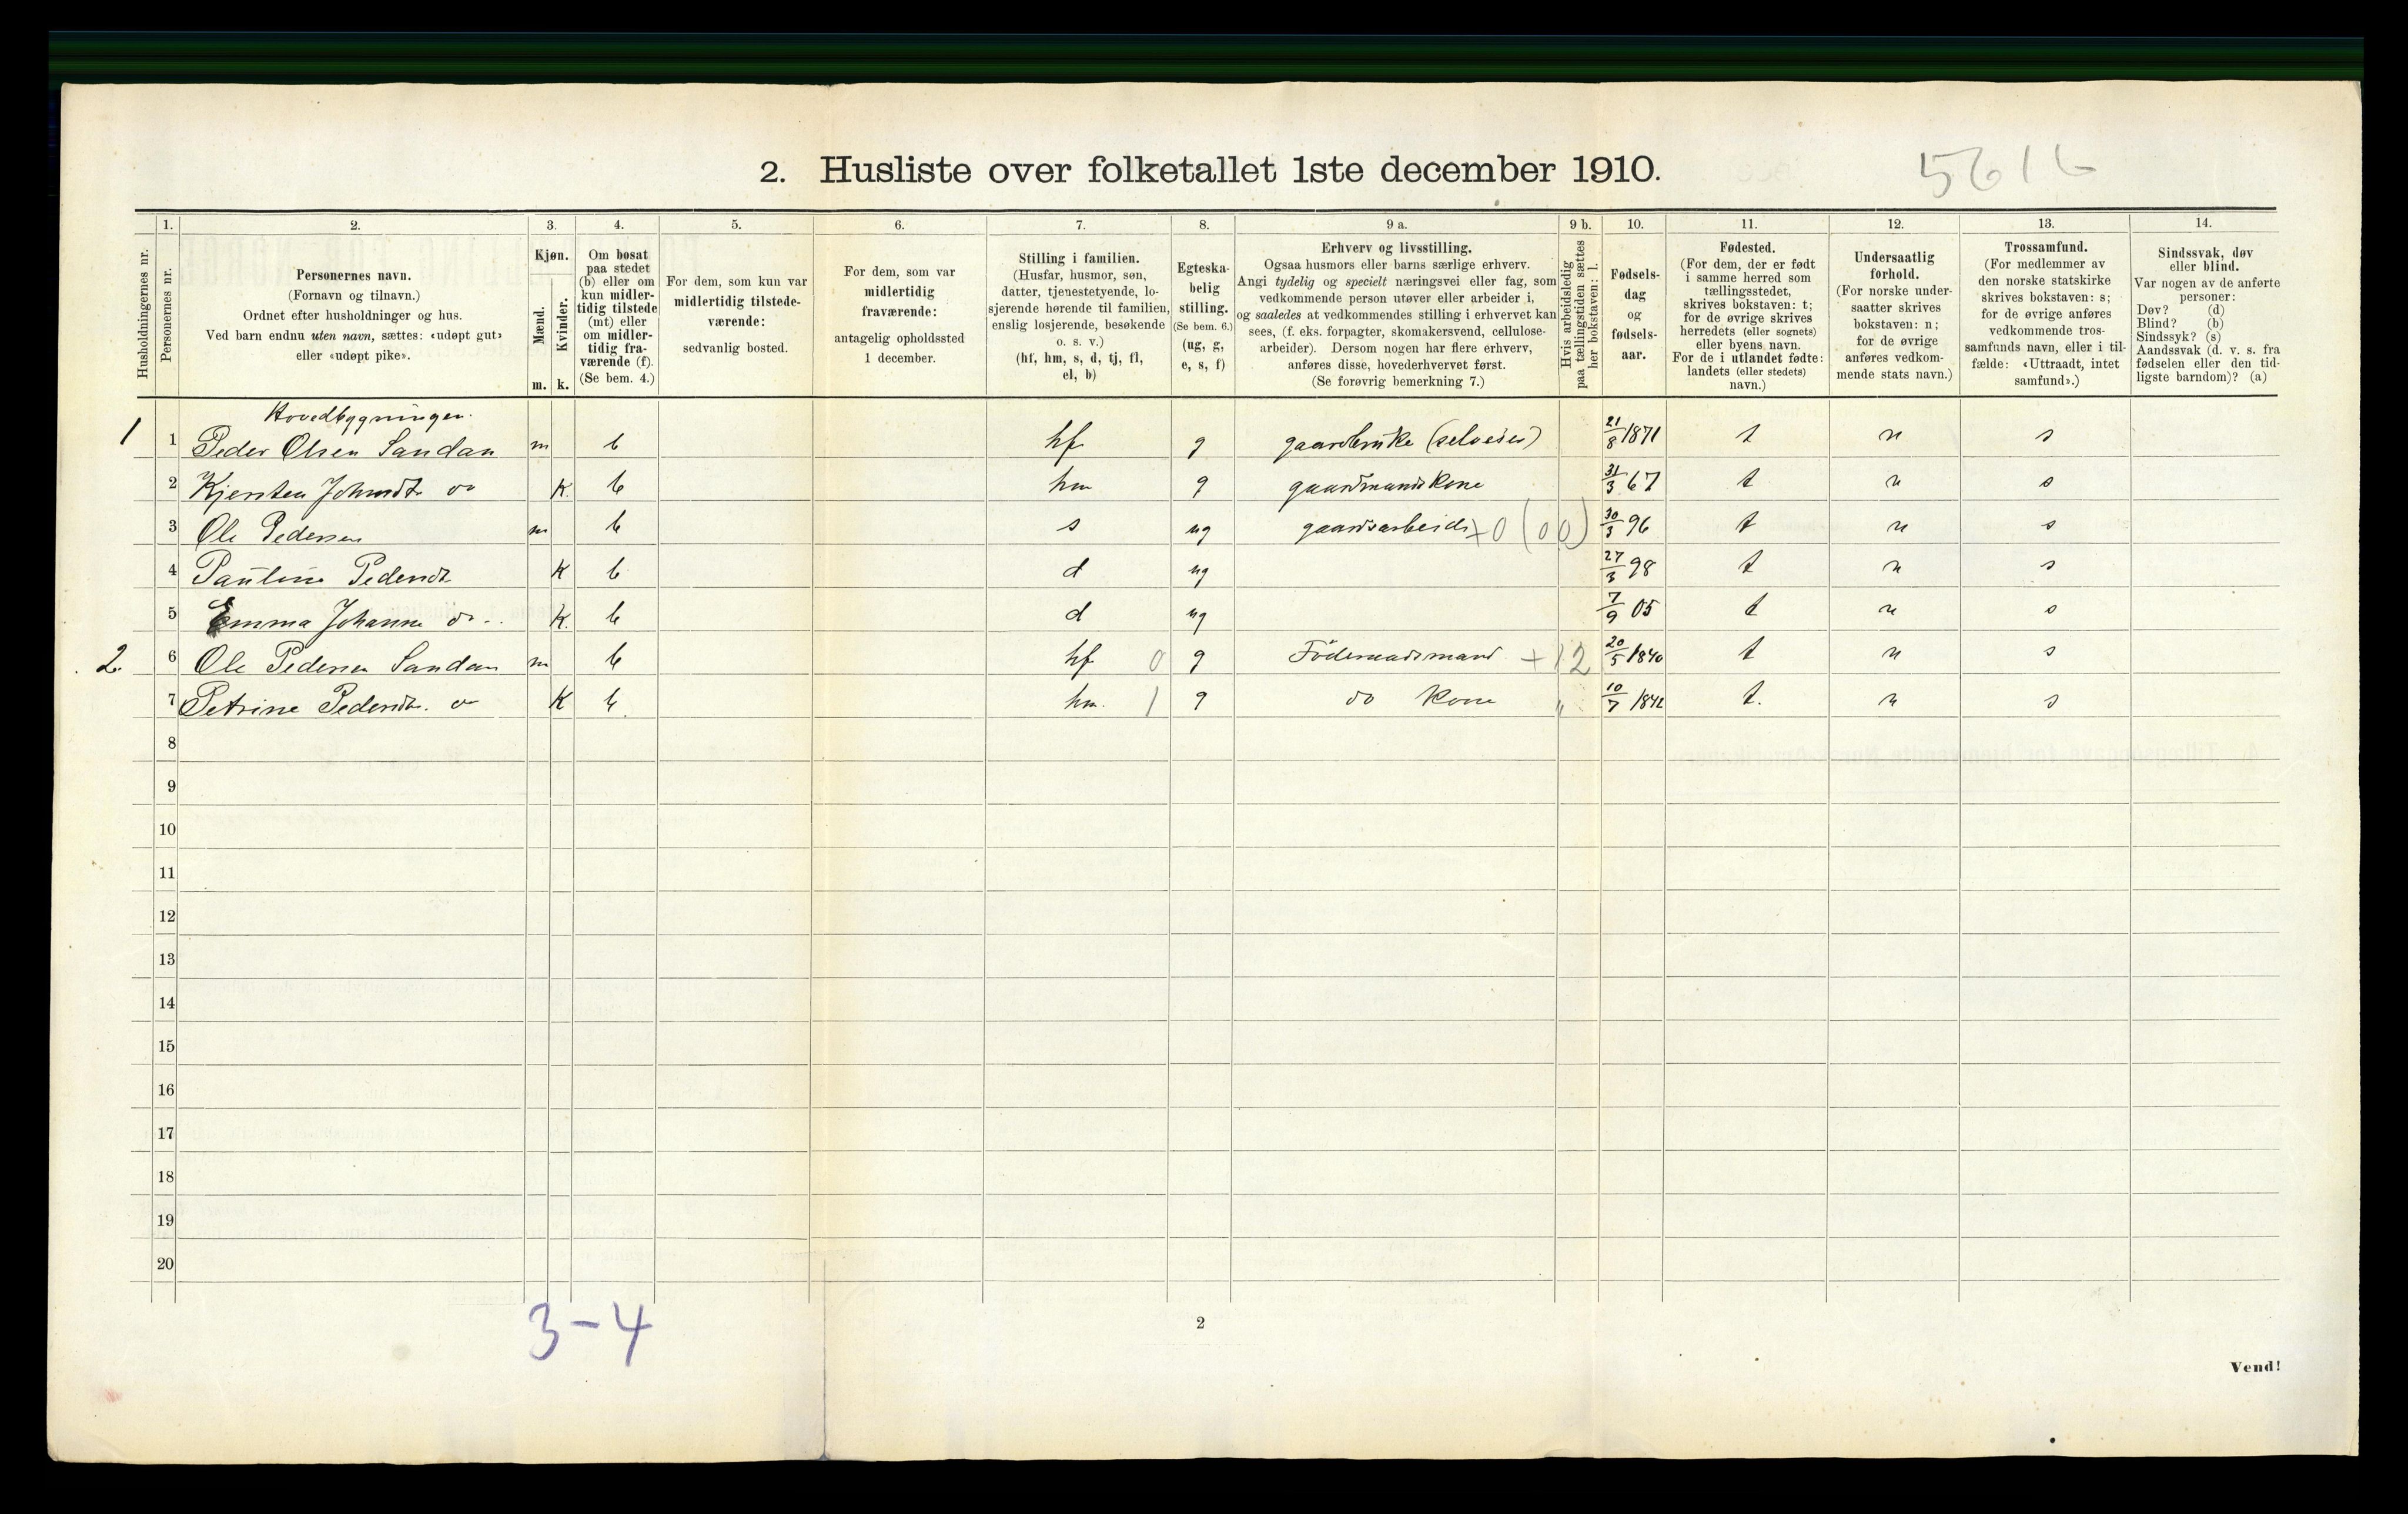 2. Husliste over folketallet 1ste december 1910.
5616
Husholdningernes nr.
1.
Personernes nr.
2.
Personernes navn.
(Fornavn og tilnavn.)
Ordnet efter husholdninger og hus.
Ved barn endnu uten navn, sættes: «udøpt gut»
eller «udøpt pike».
3.
Kjøn.
Mænd.
Kvinder.
m. k.
4.
Om bosat
paa stedet
(b) eller om
kun midler-
tidig tilstede
(mt) eller
om midler-
tidig fra-
værende (f).
(Se bem. 4.)
5.
For dem, som kun var
midlertidig tilstede-
værende:
sedvanlig bosted.
6.
For dem, som var
midlertidig
fraværende:
antagelig opholdssted
1 december.
7.
Stilling i familien.
(Husfar, husmor, søn,
datter, tjenestetyende, lo-
sjerende hørende til familien,
enslig losjerende, besøkende
o. s. v.)
(hf, hm, s, d, tj, fl,
el, b)
8.
Egteska-
belig
stilling.
(Se bem. 6.)
(ug, g,
e, s, f)
9 a.
Erhverv og livsstilling.
Ogsaa husmors eller barns særlige erhverv.
Angi tydelig og specielt næringsvei eller fag, som
vedkommende person utøver eller arbeider i,
og saaledes at vedkommendes stilling i erhvervet kan
sees, (f. eks. forpagter, skomakersvend, cellulose-
arbeider). Dersom nogen har flere erhverv,
anføres disse, hovederhvervet først.
(Se forøvrig bemerkning 7.)
9 b.
Hvis arbeidsledig
paa tællingstiden sættes
her bokstaven: l.
10.
Fødsels-
dag
og
fødsels-
aar.
11.
Fødested.
(For dem, der er født
i samme herred som
tællingsstedet,
skrives bokstaven: t;
for de øvrige skrives
herredets (eller sognets)
eller byens navn.
For de i utlandet fødte:
landets (eller stedets)
navn.)
12.
Undersaatlig
forhold.
(For norske under-
saatter skrives
bokstaven: n;
for de øvrige
anføres vedkom-
mende stats navn.)
13.
Trossamfund.
(For medlemmer av
den norske statskirke
skrives bokstaven: s;
for de øvrige anføres
vedkommende tros-
samfunds navn, eller i til-
fælde: «Uttraadt, intet
samfund».)
14.
Sindssvak, døv
eller blind.
Var nogen av de anførte
personer:
Døv? (d)
Blind? (b)
Sindssyk? (s)
Aandssvak (d. v. s. fra
fødselen eller den tid-
ligste barndom)? (a)
Hovedbygningen.
1 1 Peder Olsen Sandan m b hf g gaardbruke (selveier) 21/8 1871 t n s
2 Kjersten Johnsdt do K. b hm g gaardmandskone 31/3 67 t n s
3 Ole Pedersen m b s ug gaardsarbeide +0 (00) 30/3 96 t n s
4 Pauline Pedersdt K b d ug 27/3 98 t n s
5 Emma Johanne do K. b d ug 7/9 05 t n s
2. 6 Ole Pedersen Sandan m b hf 0 g Föderaadsmand +12 20/5 1840 t n s
7 Petrine Pedersdt. do K b hm. 1 g do kone " 10/7 1842 t. n s
8
9
10
11
12
13
14
15
16
17
18
19
20
3-4
2
Vend!